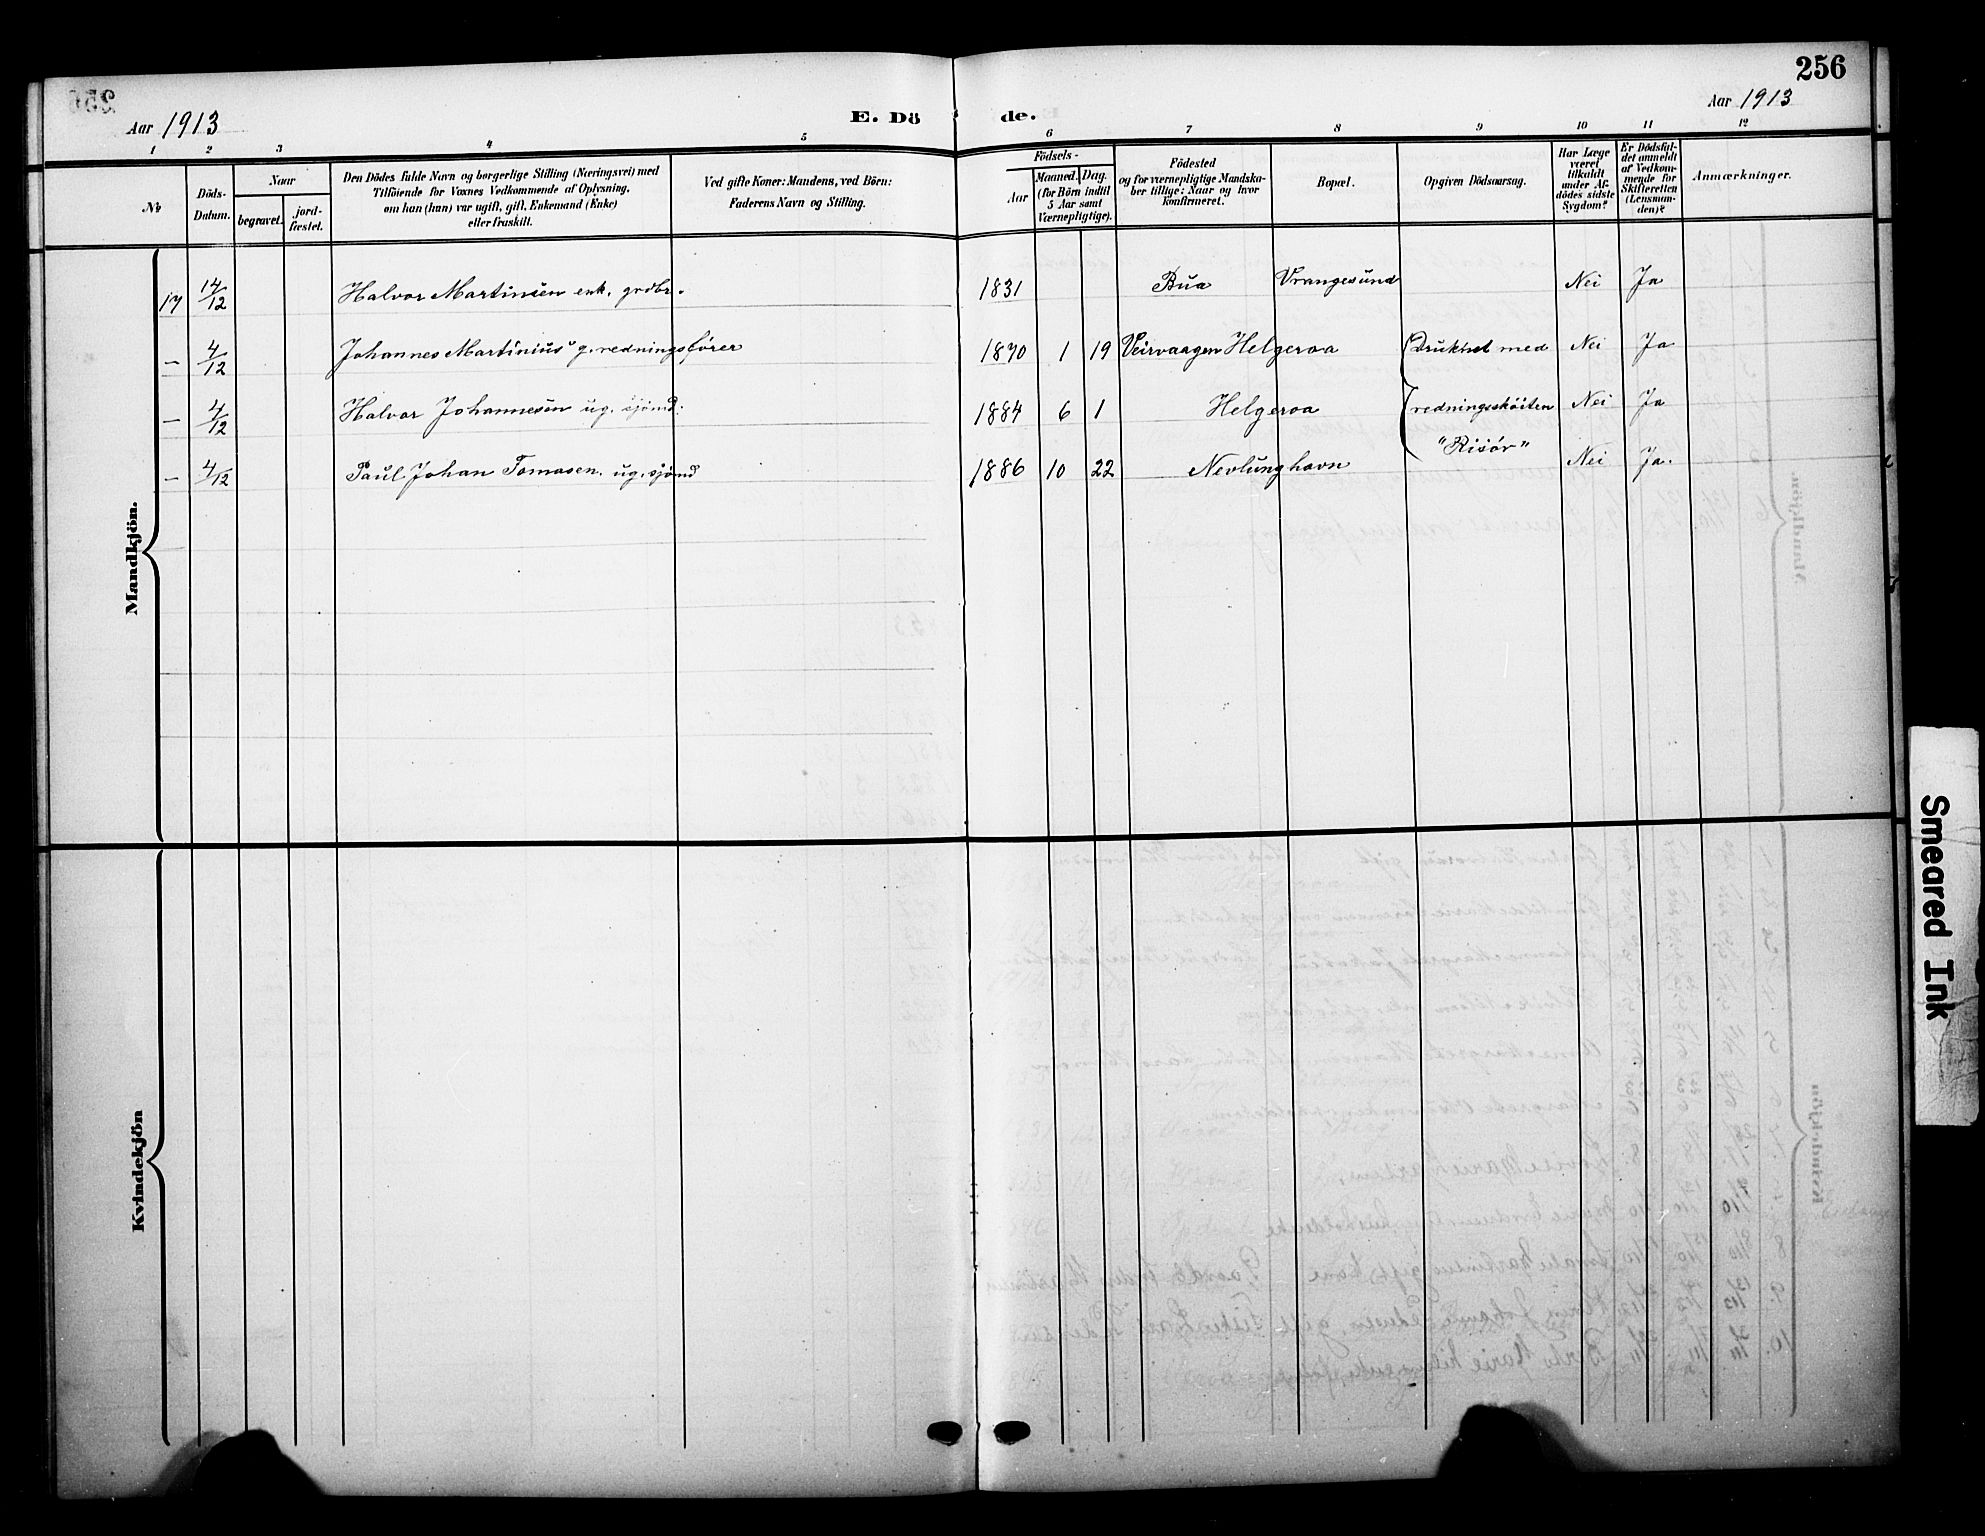 256
Aar 1913
E. Dö
de.
Aar 1913
1 2 3 4 5 6 7 8 9 10 11 12
No
Döds-Datum.
Naar
begravet.
jord-fæstet.
Den Dödes fulde Navn og borgerlige Stilling (Næringsvei) med
Tilföiende for Voxnes Vedkommende af Oplysning,
om han (hun) var ugift, gift, Enkemand (Enke)
eller fraskilt.
Ved gifte Koner: Mandens, ved Börn:
Faderens Navn og Stilling.
Födsels-
Aar
Maaned. Dag.
(for Börn indtil
5 Aar samt
Værnepligtige).
Födested
og for værnepligtige Mandska-
ber tillige: Naar og hvor
konfirmeret.
Bopæl.
Opgiven Dödsaarsag.
Har Læge
været
tilkaldt
under Af-
dödes sidste
Sygdom?
Er Dödsfal-
det anmeldt
af Vedkom-
mende for
Skifteretten
(Lensman-
den)?
Anmærkninger.
Mandkjön.
17 14/12 Halvor Martinsen enk. grdbr. 1831 Bua Vrangesund Nei Ja
— 4/12 Johannes Martinius g. redningsfører 1870 1 19 Veirvaagen Helgeroa Druknet med Nei Ja
— 4/12 Halvor Johannesen ug. sjömd. 1884 6 1 Helgeroa redningsskøiten Nei Ja
"Risør"
— 4/12 Paul Johan Tomasen. ug. sjömd 1886 10 22 Nevlunghavn Nei Ja.
Kvindekjön
Smeared Ink